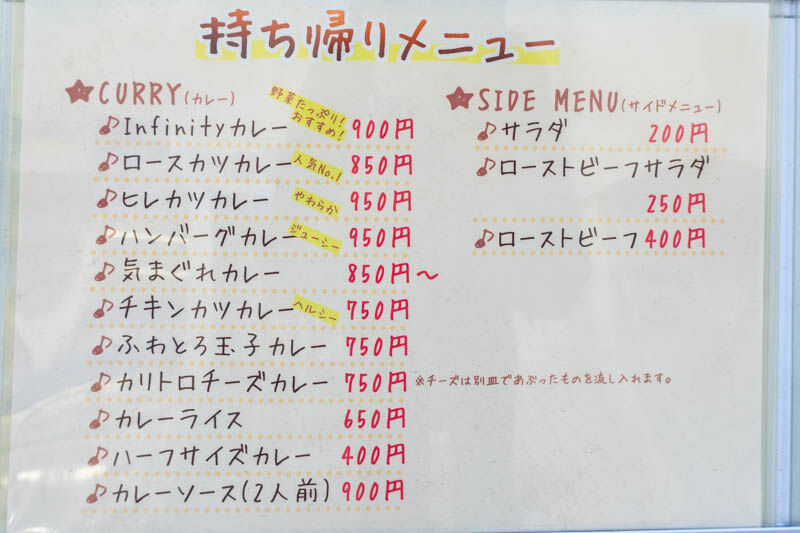 持ち帰りメニュー
★CURRY(カレー)
野菜たっぷり!
おすすめ!
♪Infinityカレー 900円
♪ロースカツカレー 人気No.1 850円
♪ヒレカツカレー やわらか 950円
♪ハンバーグカレー ジューシー 950円
♪気まぐれカレー 850円〜
♪チキンカツカレー ヘルシー 750円
♪ふわとろ玉子カレー 750円
♪カリトロチーズカレー 750円 ※チーズは別皿であぶったものを流し入れます。
♪カレーライス 650円
♪ハーフサイズカレー 400円
♪カレーソース(2人前) 900円
★SIDE MENU(サイドメニュー)
♪サラダ 200円
♪ローストビーフサラダ
250円
♪ローストビーフ 400円